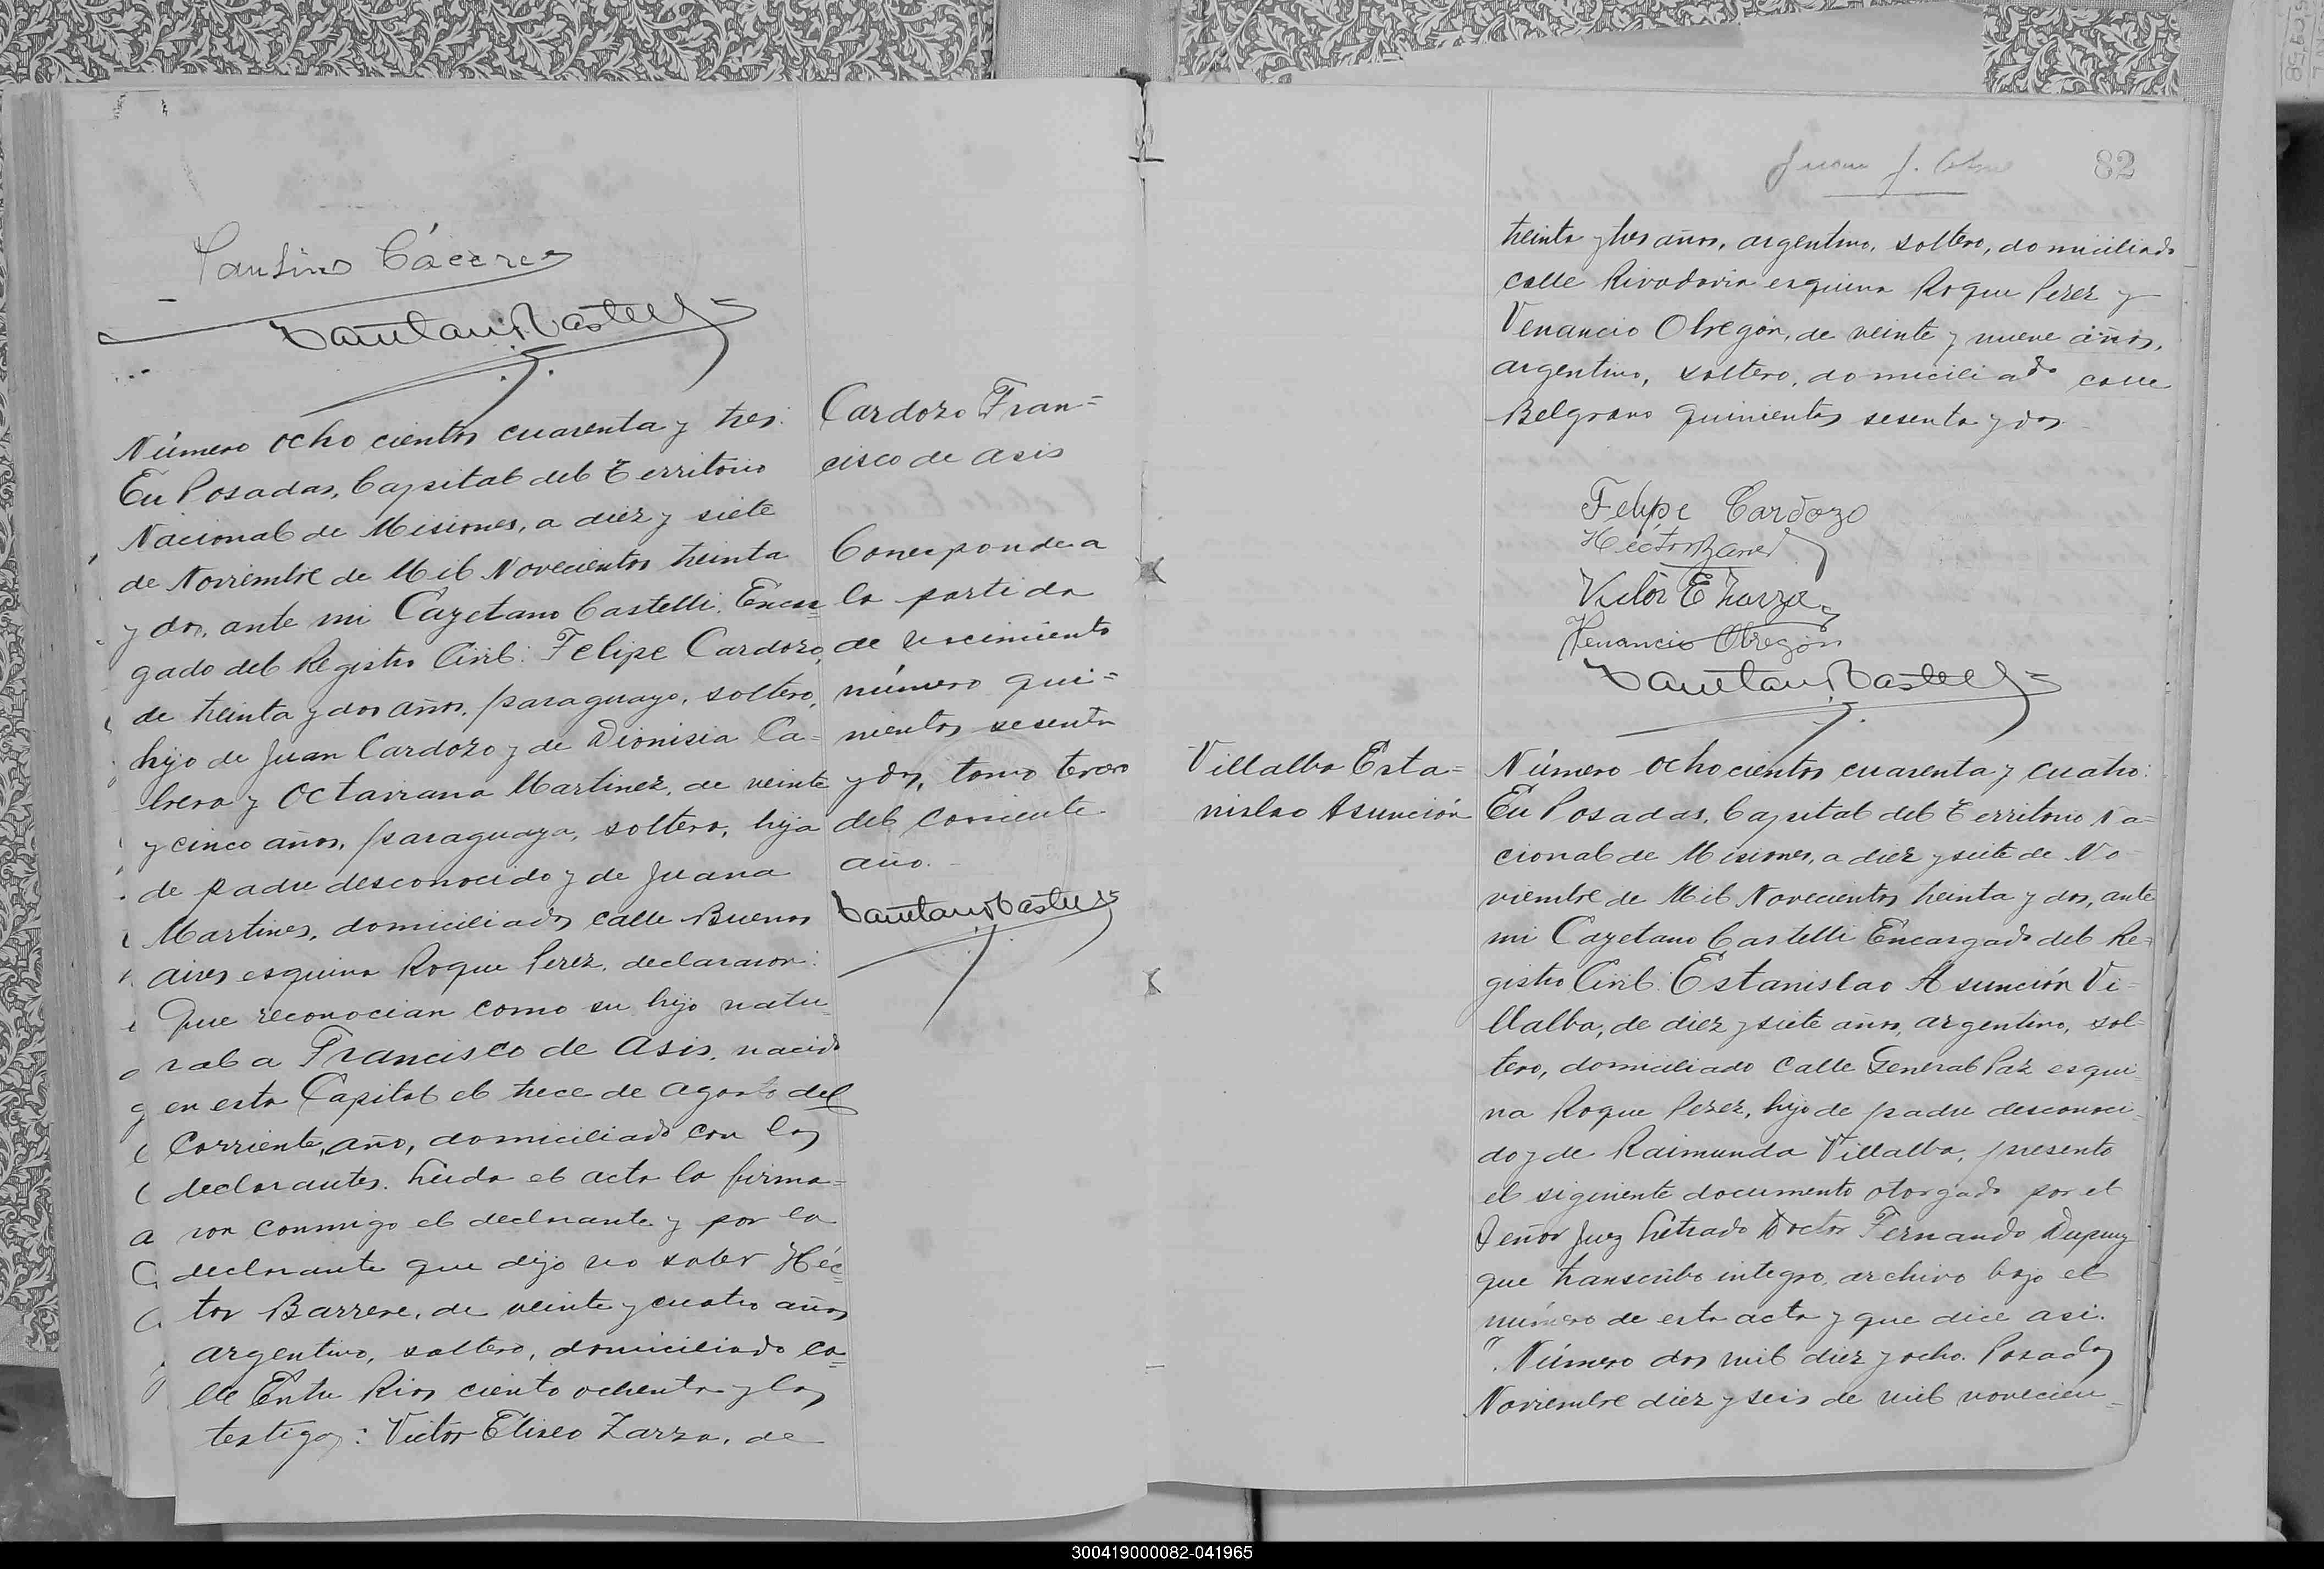 Cáceres
Número ocho cientos cuarenta y tres:
En Posadas, Capital del Territorio
Nacional de Misiones, a diez y siete
de Noviembre de Mil Novecientos treinta
y dos, ante mi Cayetano Castelli, Encar=
gado del Registro Civil: Felipe Cardozo,
de treinta y dos años, paraguayo, soltero,
hijo de Juan Cardozo y de Dionisia Ca-
brera y Octaviana Martinez, de veinte
y cinco años, paraguaya, soltera, hija
de padre desconocido y de Juana
Martines, domiciliados calle Buenos
aires esquina Roque Perez, declararon:
Que reconocian como su hijo natu-
ral a Francisco de Asis, nacido
en esta Capital el trece de agosto del
Corriente, año, domiciliado con los
declarantes. Leida el acta la firma=
ron conmigo el declarante y por la
declarante que dijo no saber Héc=
tor Barrere, de veinte y cuatro años
argentino, soltero, domiciliado ca=
lle Entre Rios ciento ochenta y los
testigos: Victor Eliseo Zarza, de
Cardozo Fran=
cisco de Asis
Corresponde a
la partida
de nacimiento
número qui=
nientos sesenta
y dos, tomo tercero
del corriente
año.
82
treinta y tres años, argentino, soltero, domiciliado
calle Rivadavia esquina Roque Perez y
Venancio Obregón, de veinte y nueve años,
argentino, soltero, domiciliado calle
Belgrano quinientos sesenta y dos
Felipe Cardozo
Victor E Zarza
Venancio Obregón
Villalba Esta=
nislao Asunción
Número ocho cientos cuarenta y cuatro:
En Posadas, Capital del Territorio Na=
cional de Misiones, a diez y siete de No-
viembre de Mil Novecientos treinta y dos, ante
mi Cayetano Castelli Encargado del Re-
gistro Civil: Estanislao Asunción Vi-
llalba, de diez y siete años, argentino, sol-
tero, domiciliado Calle General Paz esqui-
na Roque Perez, hijo de padre desconoci-
do y de Raimunda Villalba, presento
el siguiente documento otorgado por el
Señor Juez Letrado Doctor Fernando Dupuy
que transcribo integro, archivo bajo el
número de esta acta y que dice asi.
". Número dos mil diez y ocho. Posadas
Noviembre diez y seis de mil novecien-
300419000082-041965